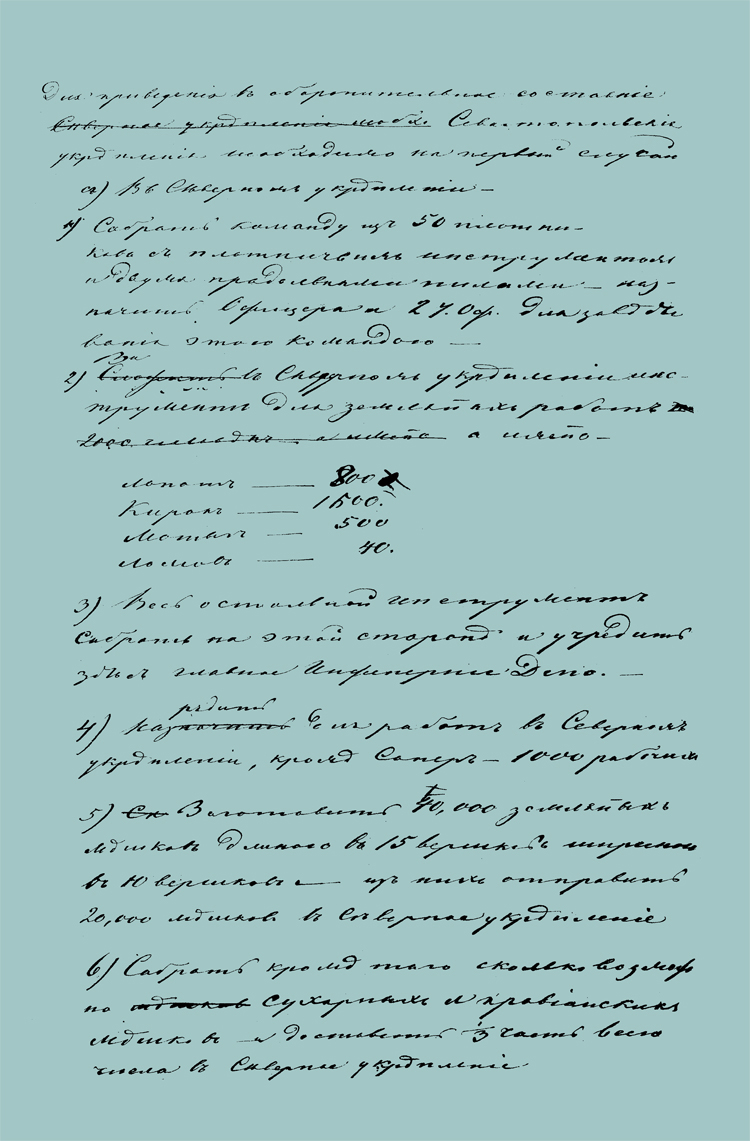 Для приведенія въ оборонительное состояніе
Сѣверное укрѣпленіе Севастопольскія
укрѣпленія необходимо на первый случай
а) Въ Сѣверномъ укрѣпленіи —
1) Собрать команду изъ 50 плотни-
ковъ съ плотничьимъ инструментомъ
и двумя продольными пилами — наз-
начить Офицера и 2 У. Оф. для завѣды
ванія этого командою —
2) Сложить въ Сѣверномъ укрѣпленіи инс-
трументъ для земляныхъ работъ
2000 а имянно —
Лопатъ — 800
Кирокъ — 1500.
Мотыгъ — 500
Ломовъ — 40.
3) Весь остальной инструментъ
собрать на этой сторонѣ и учредить
здѣсь главное Инженерное Депо. —
рядить
4) Назначить для работъ въ Сѣверномъ
укрѣпленіи, кромѣ Саперъ — 1000 рабочихъ
5) Ск Заготовить 40,000 земляныхъ
мѣшковъ длиною въ 15 вершковъ шириною
въ 10 вершковъ — изъ нихъ отправить
20,000 мѣшковъ въ Сѣверное укрѣпленіе
6) Собрать кромѣ того сколько возмож
но мѣшковъ сухарныхъ и провіанскихъ
мѣшковъ — и доставить ⅓ часть всего
числа въ Сѣверное укрѣпленіе